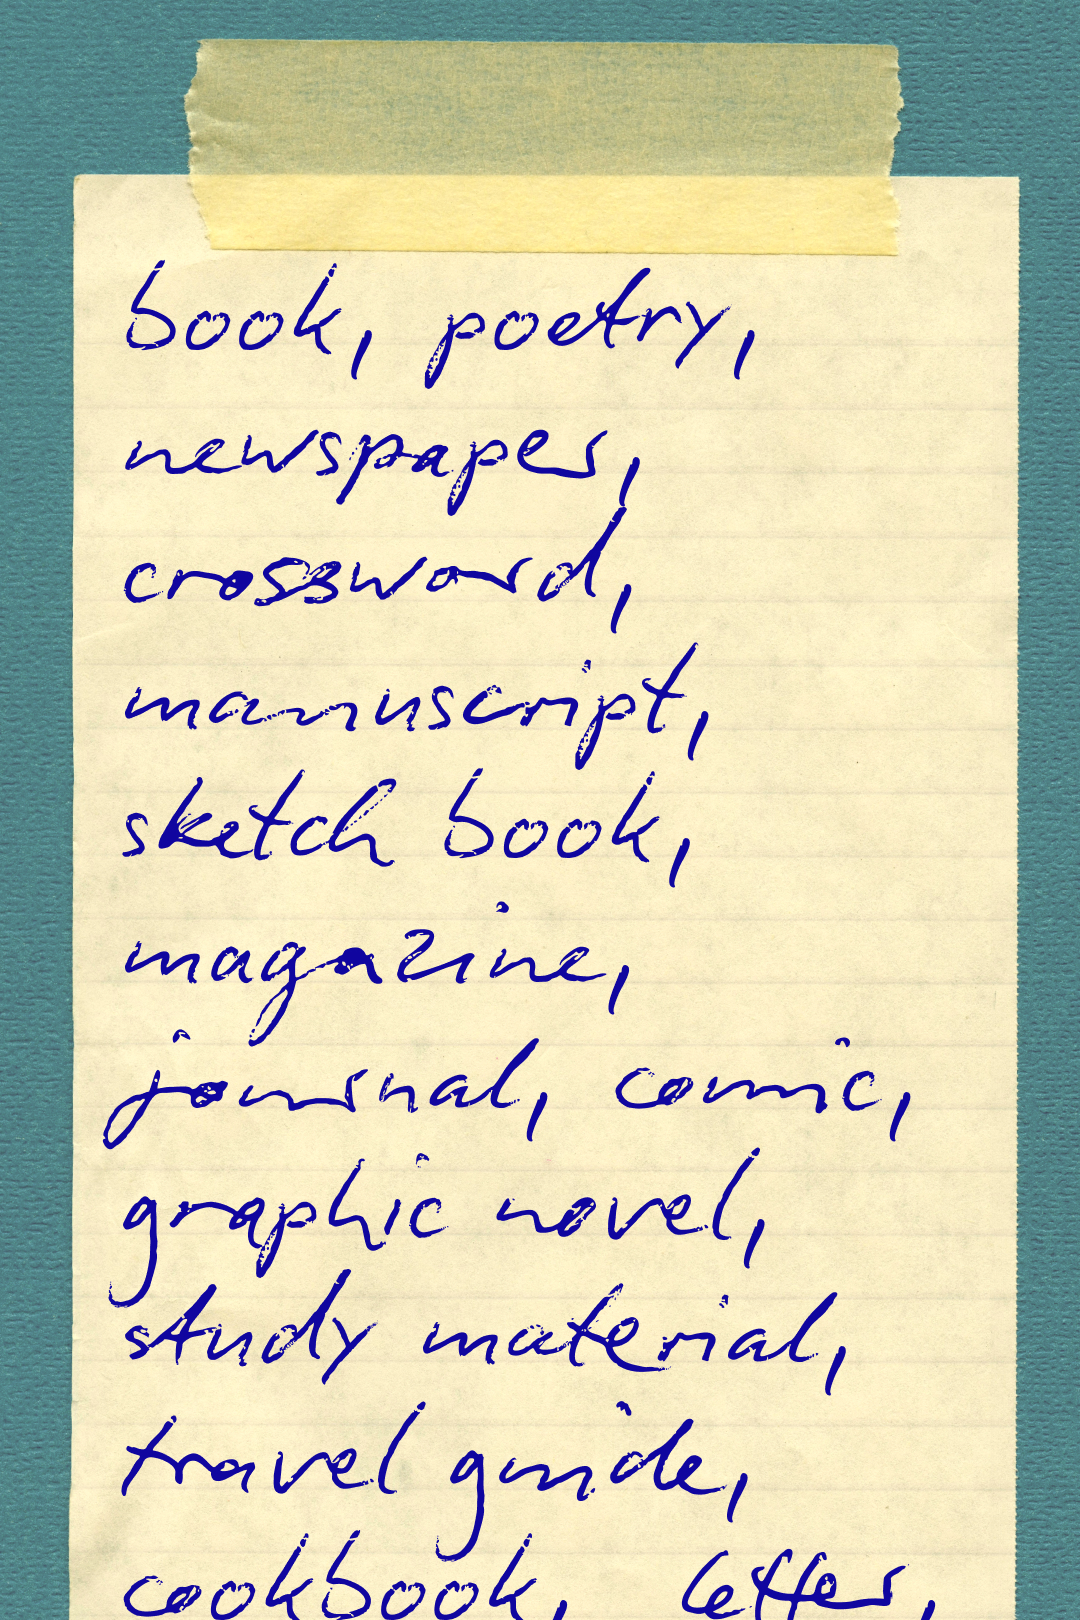 book, poetry,
newspaper,
crossword,
manuscript,
sketch book,
magazine,
journal, comic,
graphic novel,
study material,
travel guide,
cookbook, letter,